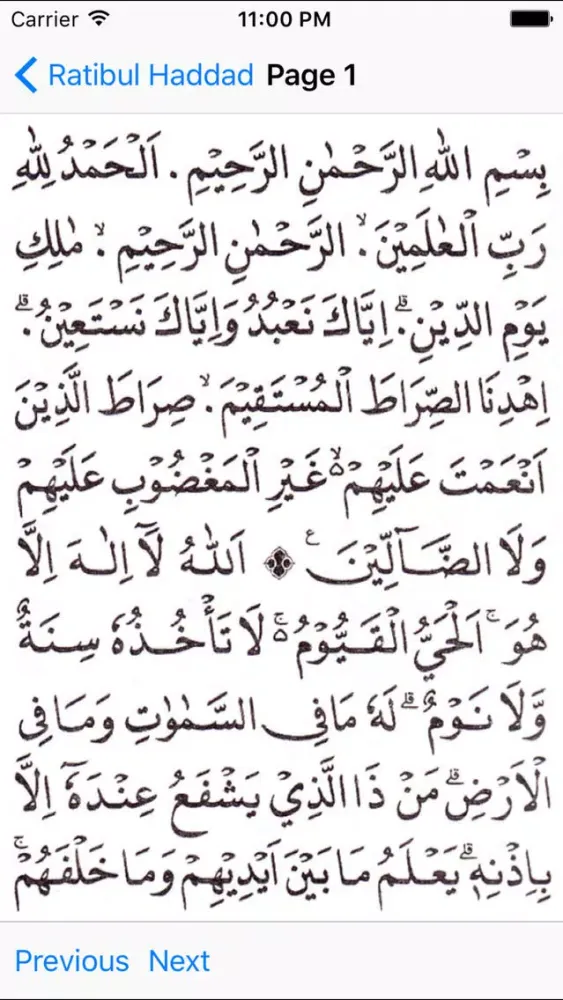 Carrier 11:00 PM
Ratibul Haddad Page 1
بِسْمِ اللهِ الرَّحْمٰنِ الرَّحِيْمِ. اَلْحَمْدُ لِلّٰهِ
رَبِّ الْعٰلَمِيْنَۙ. الرَّحْمٰنِ الرَّحِيْمِۙ. مٰلِكِ
يَوْمِ الدِّيْنِۗ. اِيَّاكَ نَعْبُدُ وَاِيَّاكَ نَسْتَعِيْنُۗ.
اِهْدِنَا الصِّرَاطَ الْمُسْتَقِيْمَۙ. صِرَاطَ الَّذِيْنَ
اَنْعَمْتَ عَلَيْهِمْ ەۙ غَيْرِ الْمَغْضُوْبِ عَلَيْهِمْ
وَلَا الضَّآلِّيْنَ ع ۞ اَللهُ لَآ اِلٰهَ اِلَّا
هُوَۚ اَلْحَيُّ الْقَيُّوْمُ ەۚ لَا تَأْخُذُهٗ سِنَةٌ
وَّلَا نَوْمٌۗ لَهٗ مَا فِى السَّمٰوٰتِ وَمَا فِى
الْاَرْضِۗ مَنْ ذَا الَّذِيْ يَشْفَعُ عِنْدَهٗٓ اِلَّا
بِاِذْنِهٖۗ يَعْلَمُ مَا بَيْنَ اَيْدِيْهِمْ وَمَا خَلْفَهُمْۚ
Previous Next